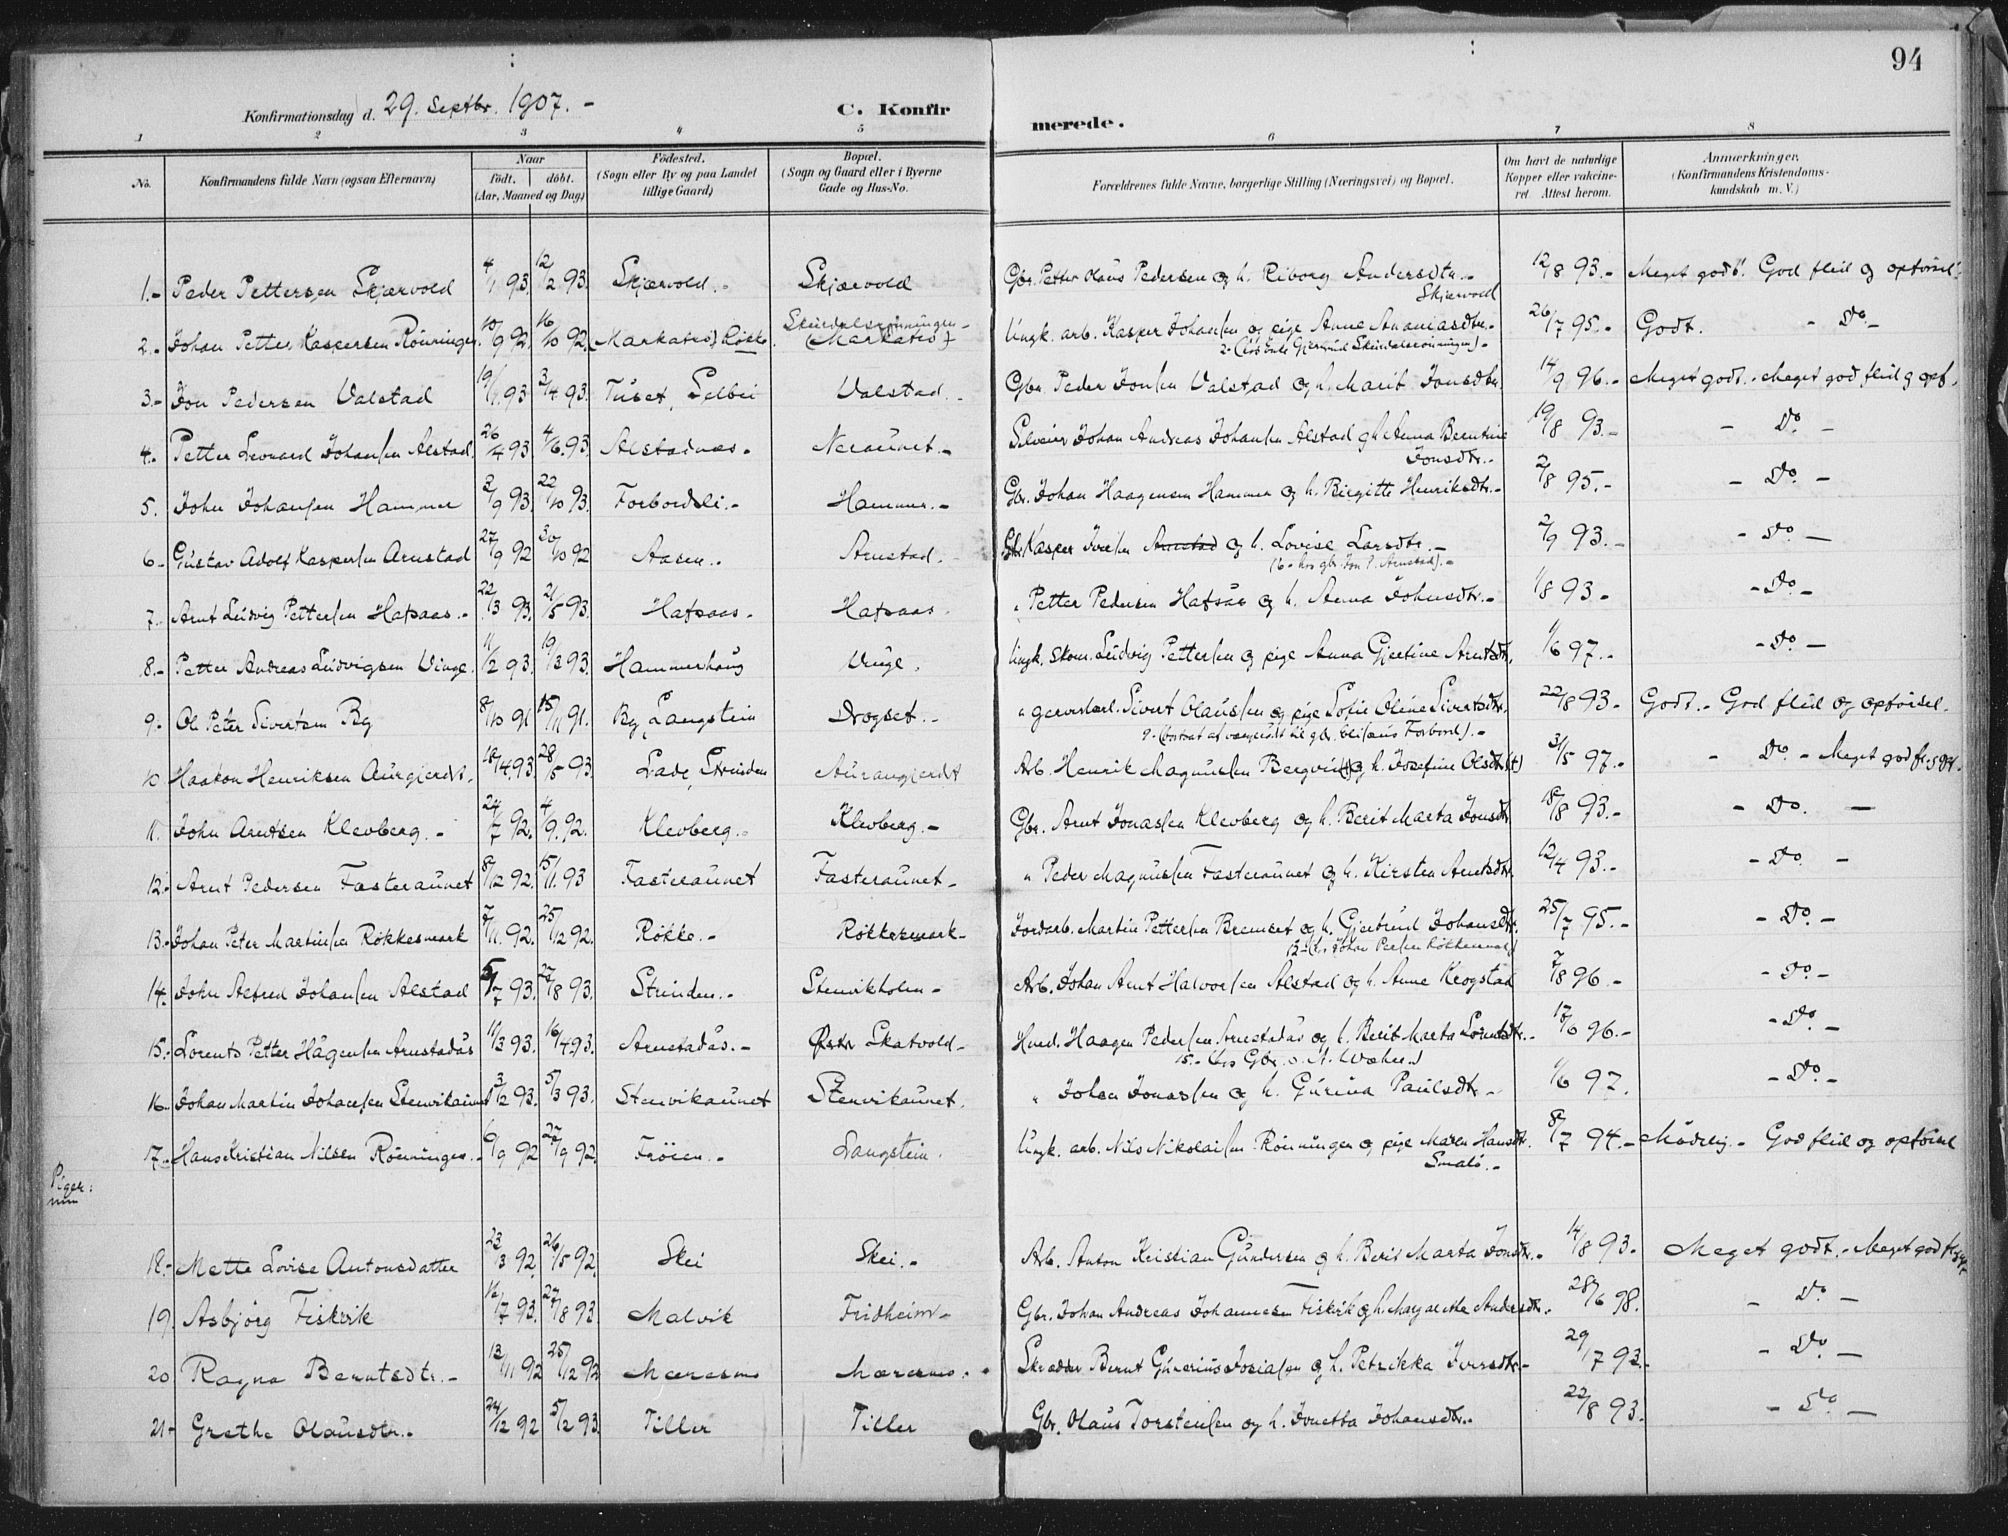 94
Konfirmationsdag d. 29. Septbr. 1907. -
C. Konfir
merede.
1 2 3 4 5 6 7 8
No. Konfirmandens fulde Navn (ogsaa Efternavn) Naar født. døbt. (Aar, Maaned og Dag) Fødested. (Sogn eller By og paa Landet tillige Gaard) Bopæl. (Sogn og Gaard eller i Byerne Gade og Hus-No. Forældrenes fulde Navne, borgerlige Stilling (Næringsvei) og Bopæl. Om havt de naturlige Kopper eller vakcineret Attest herom. Anmærkninger. (Konfirmandens Kristendomskundskab m. V.)
1.- Peder Pettersen Skjærvold 4/1 93. 12/2 93. Skjærvold.- Skjærvold Gbr. Petter Olaus Pedersen og h. Riborg Andersdtr.- 12/8 93.- Meget godt. God flid og opførsel.
Skjærvold
2.- Johan Petter Kaspersen Rønningen 10/9 92. 16/10 92. (Markatrø) Røkke. Skurdalsrønningen - (Markatrø) Ungk. arb. Kasper Johansen og pige Anne Ananiasdtr.- 26/7 95.- Godt. - Do -
3.- Jon Pedersen Valstad 19/1 93 3/4 93. Tuset, Selbu Valstad.- Gbr. Peder Jonsen Valstad og h. Marit Jonsdtr. 14/9 96.- Meget godt.- Meget god flid og opf.
4.- Petter Leonard Johansen Alstad. 26/4 93 4/6 93. Alstadnes.- Neraunet.- Selveier Johan Andreas Johansen Alstad og h. Anna Berntine 19/8 93.- - Do -
Jonsdtr.-
5. John Johansen Hammer 3/9 93. 22/10 93. Forbordsli.- Hammer.- Gbr. Johan Haagensen Hammer og h. Birgitte Henriksdtr.- 2/8 95.- - Do -
6- Gustav Adolf Kaspersen Arnstad 27/9 92 30/10 92 Aasen.- Arnstad.- Gbr. Kasper Iversen Arnstad og h. Lovise Larsdtr.- 2/9 93.- - Do -
(6- hos gbr. Jon P. Arnstad).-
7.- Arnt Ludvig Pettersen Hafsaas.- 22/3 93. 21/5 93. Hafsaas- Hafsaas. " Petter Pedersen Hafsås og h. Anna Johnsdtr.- 1/8 93.- - Do -
8.- Petter Andreas Ludvigsen Vinge. 11/2 93. 19/3 93. Hammerhaug Vinge. Ungk. skom. Ludvig Pettersen og pige Anna Gjertine Arntsdtr. 1/6 97.- - Do -
9- Ole Peter Sivertsen By 8/10 91 15/11 91. By, Langstein Drogset.- " Sivert Olaussen og pige Sofie Oline Sivertsdtr. 22/8 93.- Godt.- God flid og opførsel.
10 Haakon Henriksen Aurgjerdt. 18/4 93. 28/5 93. Lade, Strinden Aurangjerdt Arb. Henrik Magnussen Bergvin og h. Josefine Olsdtr 3/5 97.- - Do - Meget god fl.
11. John Arntsen Klevberg.- 24/7 92. 4/9 92. Klevberg.- Klevberg.- Gbr. Arnt Jonassen Klevberg og h. Berit Marta Jonsdtr 18/8 93.- - Do. -
12.- Arnt Pedersen Fasteraunet 8/12 92. 15/1 93 Fasteraunet Fasteraunet- " Peder Magnussen Fasteraunet og h. Kirsten Arntsdtr. 12/4 93.- - Do. -
13.- Johan Peter Martinsen Røkkesmark 7/11 92. 25/12 92. Røkke.- Røkkesmark- Jordarb. Martin Pettersen Bremset og h. Gjertrud Johansdtr. 25/7 95.- - Do. -
14. John Alfred Johansen Alstad 5/7 93. 27/8 93. Strinden.- Stenvikholm- Arb. Johan Arnt Halvorsen Alstad og h. Anne Krogstad 7/8 96.- - Do -
15.- Lorents Petter Hågensen Arnstadås 11/3 93. 16/4 93. Arnstadås.- Østr Skatvold- Husmd. Haagen Pedersen Arnstadås og h. Berit Marta Lorntsdtr.- 17/6 96.- - Do. -
16.- Johan Martin Johansen Stenvikaunet 3/2 93. 5/3 93. Stenvikaunet Stenvikaunet. " Johan Jonassen og h. Gurina Paulsdtr.- 1/6 97. - Do. -
17.- Hans Kristian Nilsen Rønningen.- 6/9 92 27/9 92. Frøien.- Langstein. Ungk. arb. Nils Nikolaisen Rønningen og pige Maren Hansdtr. 8/7 94.- Mådelig.- God flid og opførsel
Piger:
18.- Mette Lovise Antonsdatter 23/3 92. 26/5 92. Skei Skei.- Arb. Anton Kristian Gundersen og h. Berit Marta Jonsdtr.- 14/8 93. Meget godt.- Meget god fl.
19. Asbjørg Fiskvik 12/7 93. 27/8 93 Malvik Fridheim- Gbr. Johan Andreas Johannesen Fiskvik og h. Margarethe Andersdtr. 28/6 98. - Do -
20 Ragna Berntsdtr.- 13/11 92 25/12 92 Mæresmo Mæresmo. Skrædder Bernt Gunerius Josiassen og h. Petrikka Iversdtr- 29/7 93.- - Do. -
21- Grethe Olausdtr.- 24/12 92 5/2 93. Tiller Tiller Gbr. Olaus Torstensen og h. Jonetta Johansdtr.- 22/8 93. - Do -